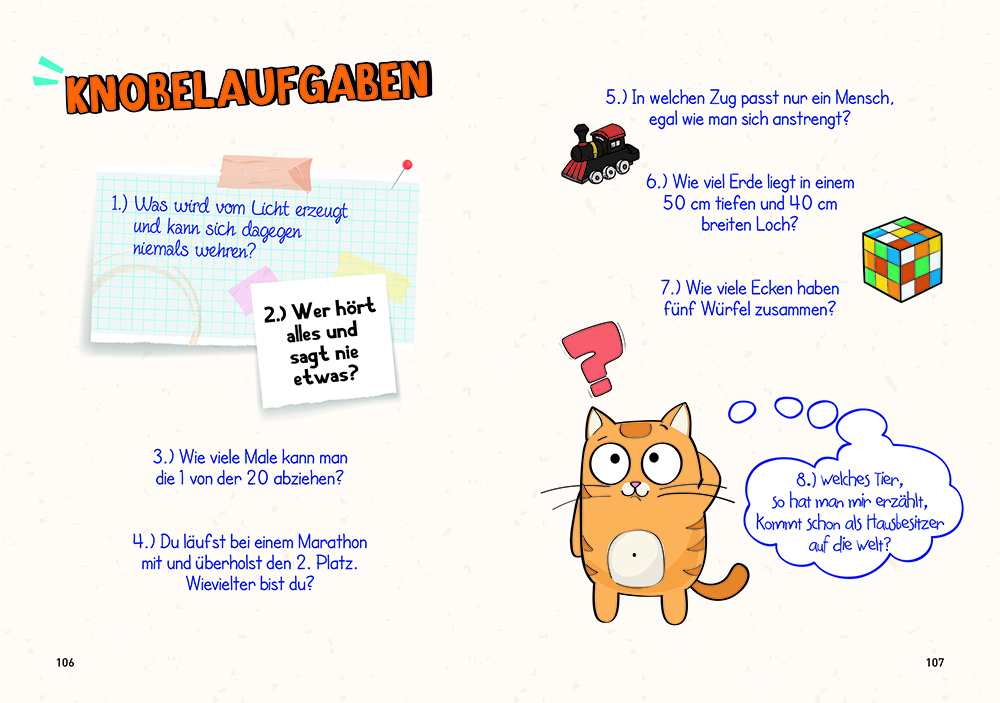 KNOBELAUFGABEN
1.) Was wird vom Licht erzeugt
und kann sich dagegen
niemals wehren?
2.) Wer hört
alles und
sagt nie
etwas?
3.) Wie viele Male kann man
die 1 von der 20 abziehen?
4.) Du läufst bei einem Marathon
mit und überholst den 2. Platz.
Wievielter bist du?
106
5.) In welchen Zug passt nur ein Mensch,
egal wie man sich anstrengt?
6.) Wie viel Erde liegt in einem
50 cm tiefen und 40 cm
breiten Loch?
7.) Wie viele Ecken haben
fünf Würfel zusammen?
?
8.) welches Tier,
so hat man mir erzählt,
Kommt schon als Hausbesitzer
auf die Welt?
107